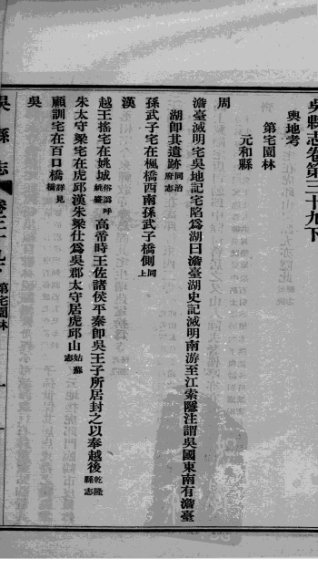 吳縣志卷第三十九下
輿地考
第宅園林
元和縣
周
澹臺滅明宅吳地記宅陷爲湖曰澹臺湖史記滅明南游至江索隱注謂吳國東南有澹臺
湖卽其遺跡同治府志
孫武子宅在楓橋西南孫武子橋側同上
漢
越王搖宅在姚城俗譌呼姚臺高帝時王佐諸侯平秦卽吳王子所居封之以奉越後乾隆縣志
朱太守梁宅在虎邱漢朱梁仕爲吳郡太守居虎邱山姑蘇志
顧訓宅在百口橋詳見橋
吳
吳縣志 卷三十九下 第宅園林 一